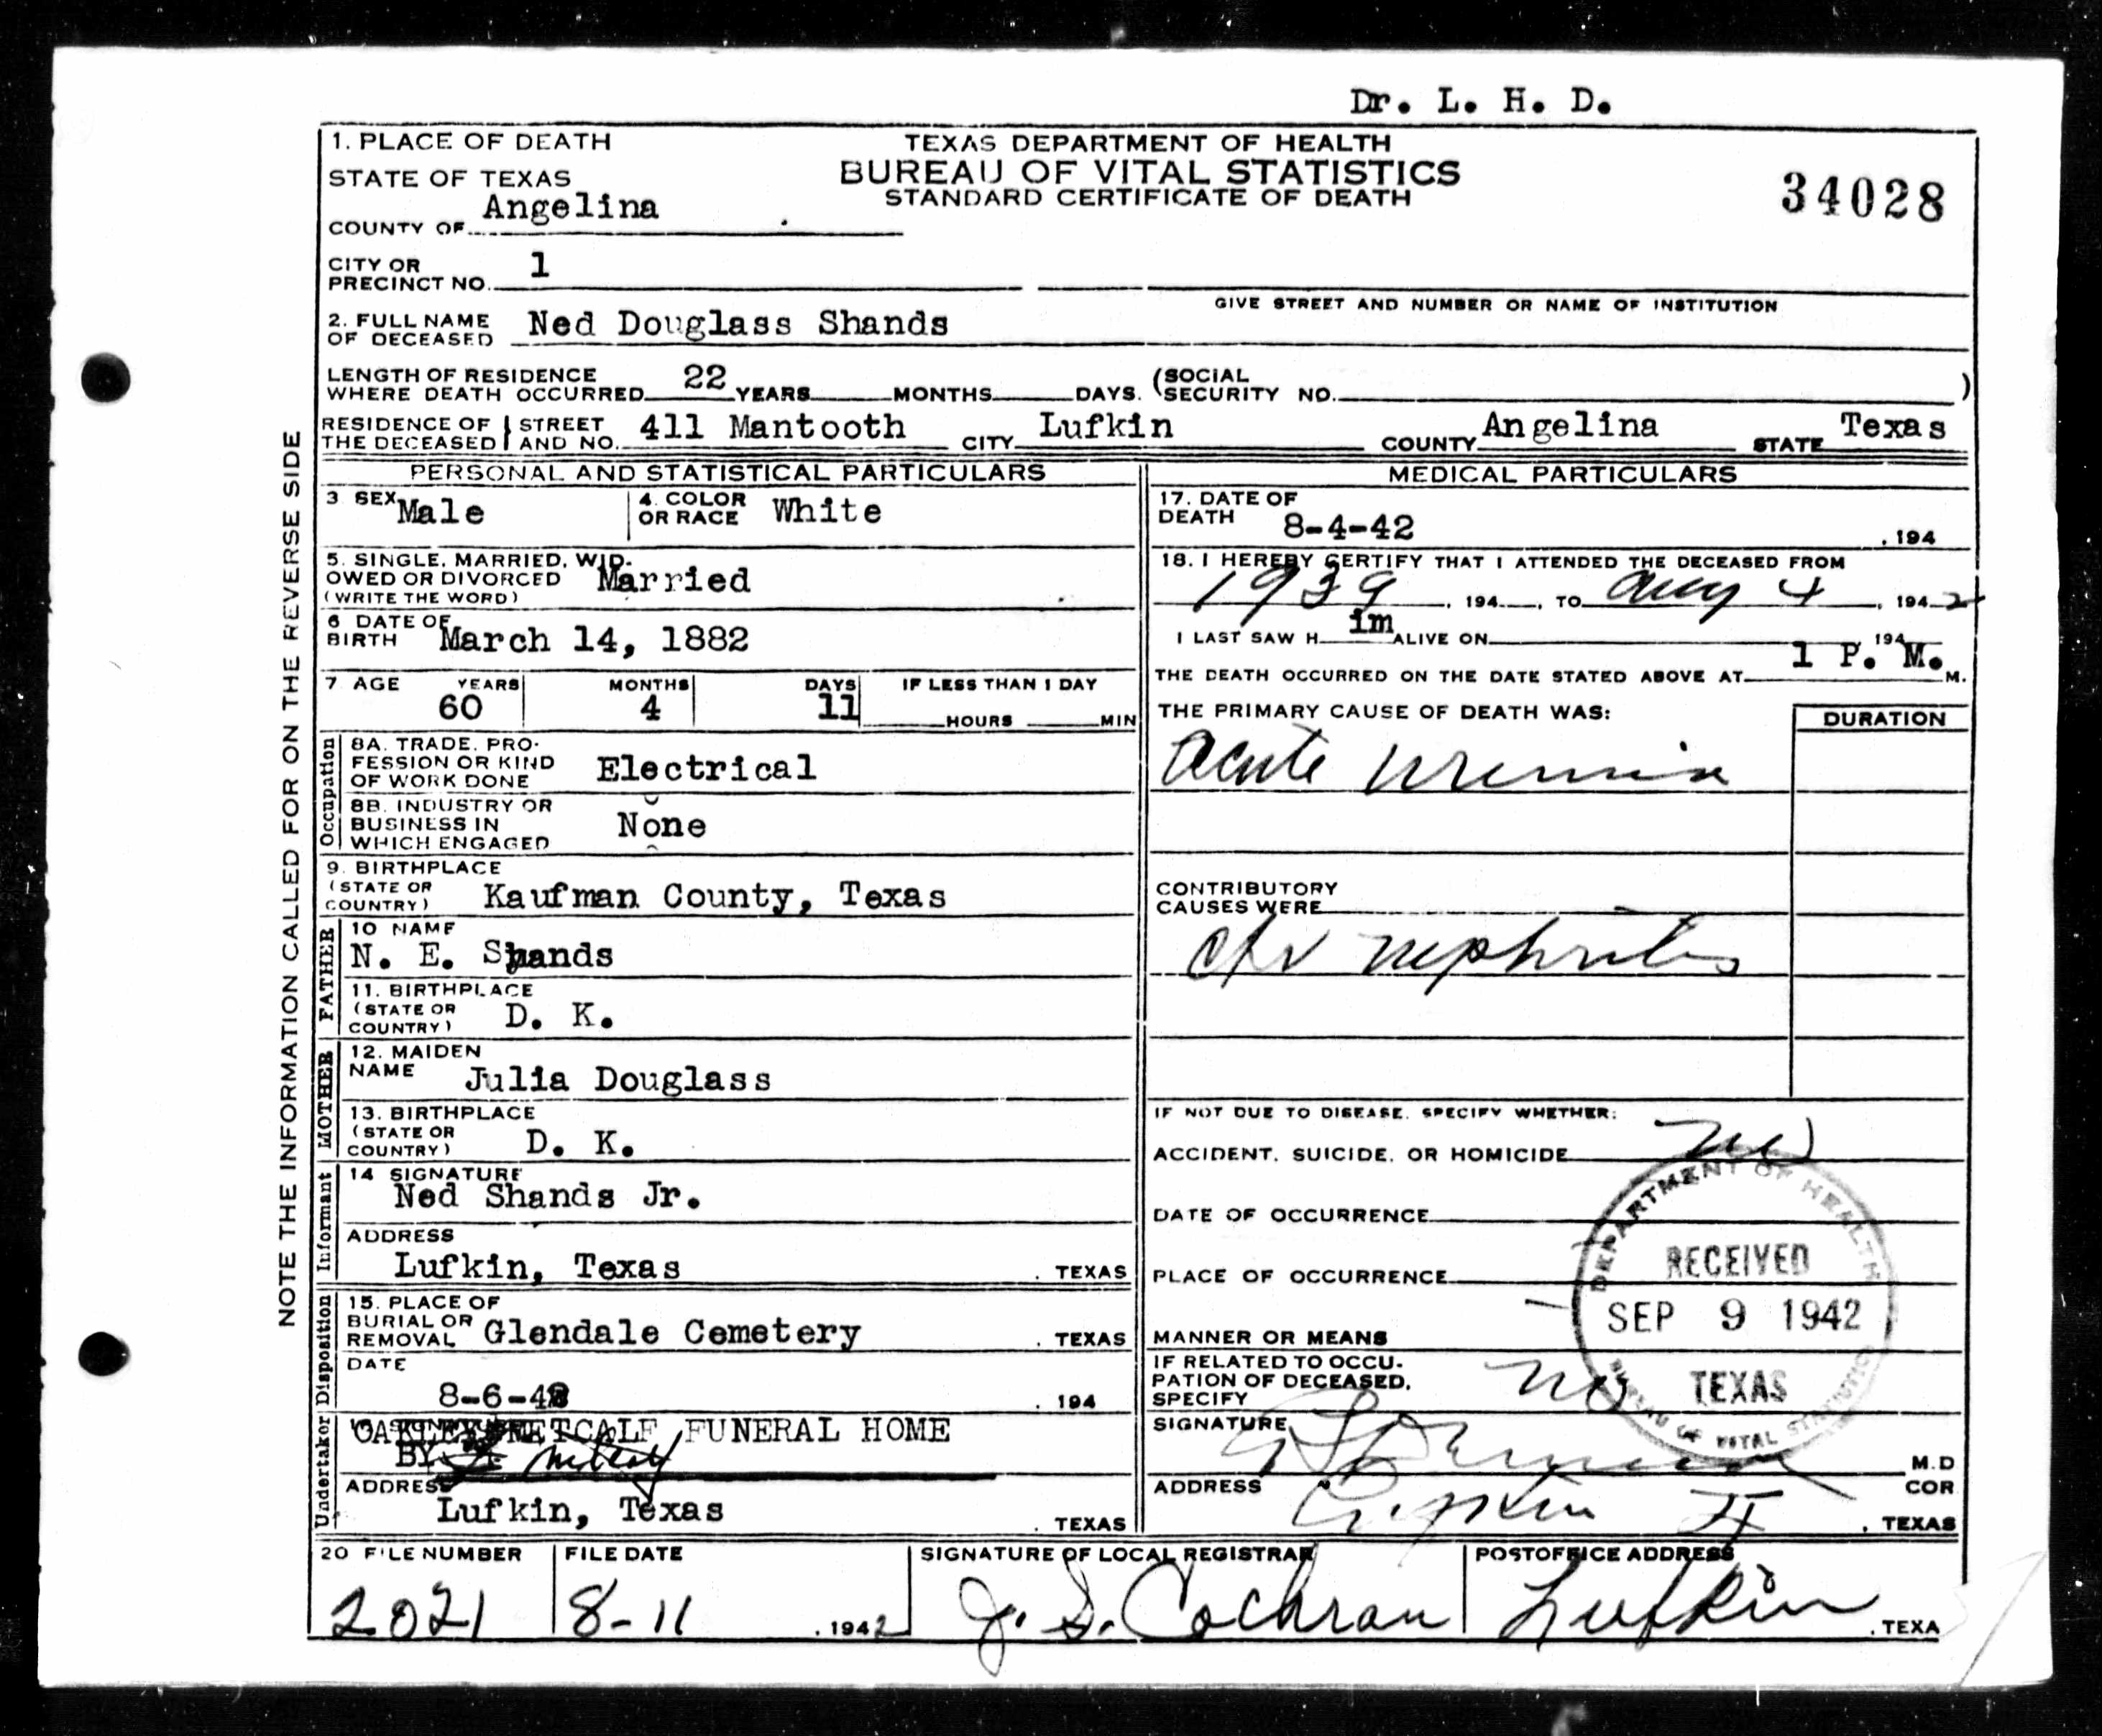 Dr. L. H. D.
1. PLACE OF DEATH
STATE OF TEXAS
COUNTY OF Angelina
TEXAS DEPARTMENT OF HEALTH
BUREAU OF VITAL STATISTICS
STANDARD CERTIFICATE OF DEATH
34028
CITY OR
PRECINCT NO. 1
GIVE STREET AND NUMBER OR NAME OF INSTITUTION
2. FULL NAME
OF DECEASED Ned Douglass Shands
LENGTH OF RESIDENCE
WHERE DEATH OCCURRED 22 YEARS MONTHS DAYS. (SOCIAL SECURITY NO. )
RESIDENCE OF THE DECEASED STREET AND NO. 411 Mantooth CITY Lufkin COUNTY Angelina STATE Texas
NOTE THE INFORMATION CALLED FOR ON THE REVERSE SIDE
PERSONAL AND STATISTICAL PARTICULARS
3 SEX Male 4. COLOR OR RACE White
5. SINGLE, MARRIED, WID-
OWED OR DIVORCED Married
(WRITE THE WORD)
6 DATE OF
BIRTH March 14, 1882
7 AGE YEARS MONTHS DAYS IF LESS THAN 1 DAY
60 4 11 HOURS MIN
Occupation
8A. TRADE, PRO-
FESSION OR KIND
OF WORK DONE Electrical
8B. INDUSTRY OR
BUSINESS IN
WHICH ENGAGED None
9. BIRTHPLACE
(STATE OR
COUNTRY) Kaufman County, Texas
FATHER
10 NAME
N. E. Shands
11. BIRTHPLACE
(STATE OR
COUNTRY) D. K.
MOTHER
12. MAIDEN
NAME Julia Douglass
13. BIRTHPLACE
(STATE OR
COUNTRY) D. K.
Informant
14 SIGNATURE
Ned Shands Jr.
ADDRESS
Lufkin, Texas . TEXAS
Disposition
15. PLACE OF
BURIAL OR
REMOVAL Glendale Cemetery . TEXAS
DATE
8-6-42 . 194
Undertaker
OAKLEY METCALF FUNERAL HOME
BY
ADDRESS
Lufkin, Texas . TEXAS
MEDICAL PARTICULARS
17. DATE OF
DEATH 8-4-42 , 194
18. I HEREBY CERTIFY THAT I ATTENDED THE DECEASED FROM
1939 , 194 , TO Aug 4 , 1942
I LAST SAW H im ALIVE ON 194
THE DEATH OCCURRED ON THE DATE STATED ABOVE AT 1 P. M. M.
THE PRIMARY CAUSE OF DEATH WAS: DURATION
Acute Uremia
CONTRIBUTORY
CAUSES WERE
Chr nephritis
IF NOT DUE TO DISEASE, SPECIFY WHETHER:
ACCIDENT, SUICIDE, OR HOMICIDE no
DATE OF OCCURRENCE
PLACE OF OCCURRENCE
MANNER OR MEANS
IF RELATED TO OCCU-
PATION OF DECEASED,
SPECIFY no
DEPARTMENT OF HEALTH
RECEIVED
SEP 9 1942
TEXAS
BUREAU OF VITAL STATISTICS
SIGNATURE M.D
ADDRESS Lufkin COR
, TEXAS
20 FILE NUMBER FILE DATE SIGNATURE OF LOCAL REGISTRAR POSTOFFICE ADDRESS
2021 8-11 , 1942 J. S. Cochran Lufkin , TEXA